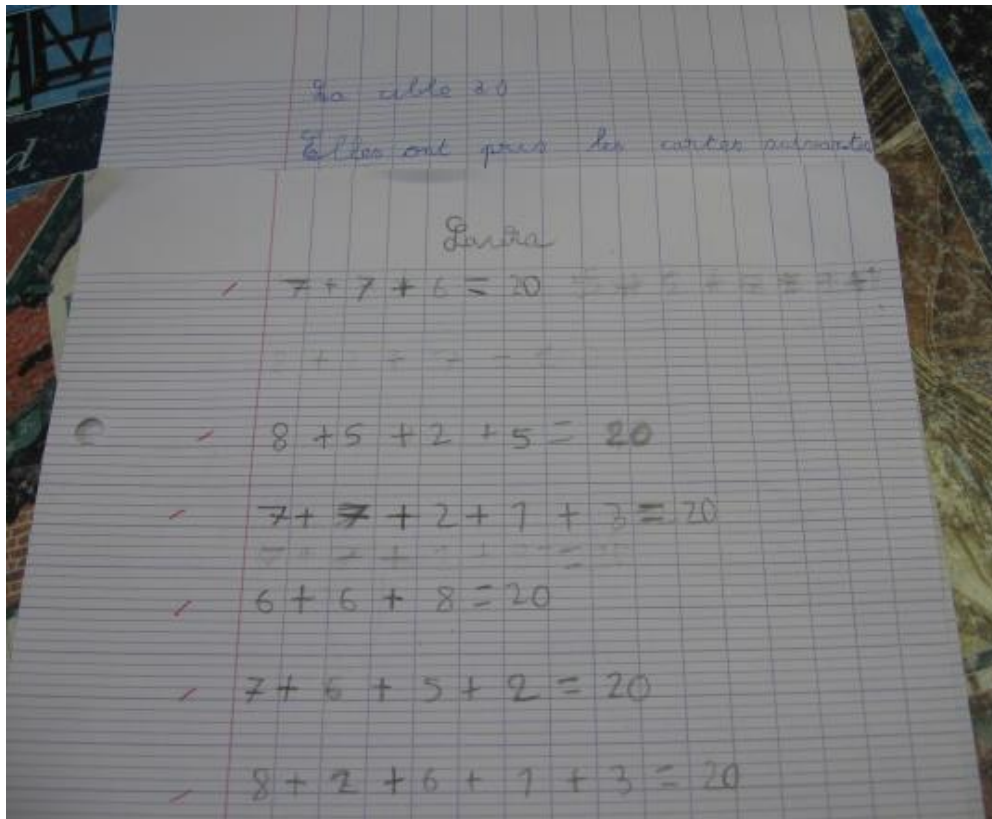 La cible 20
Elles ont pris les cartes suivantes
7 + 7 + 6 = 20
8 + 5 + 2 + 5 = 20
7 + 7 + 2 + 1 + 3 = 20
6 + 6 + 8 = 20
7 + 6 + 5 + 2 = 20
8 + 2 + 6 + 1 + 3 = 20